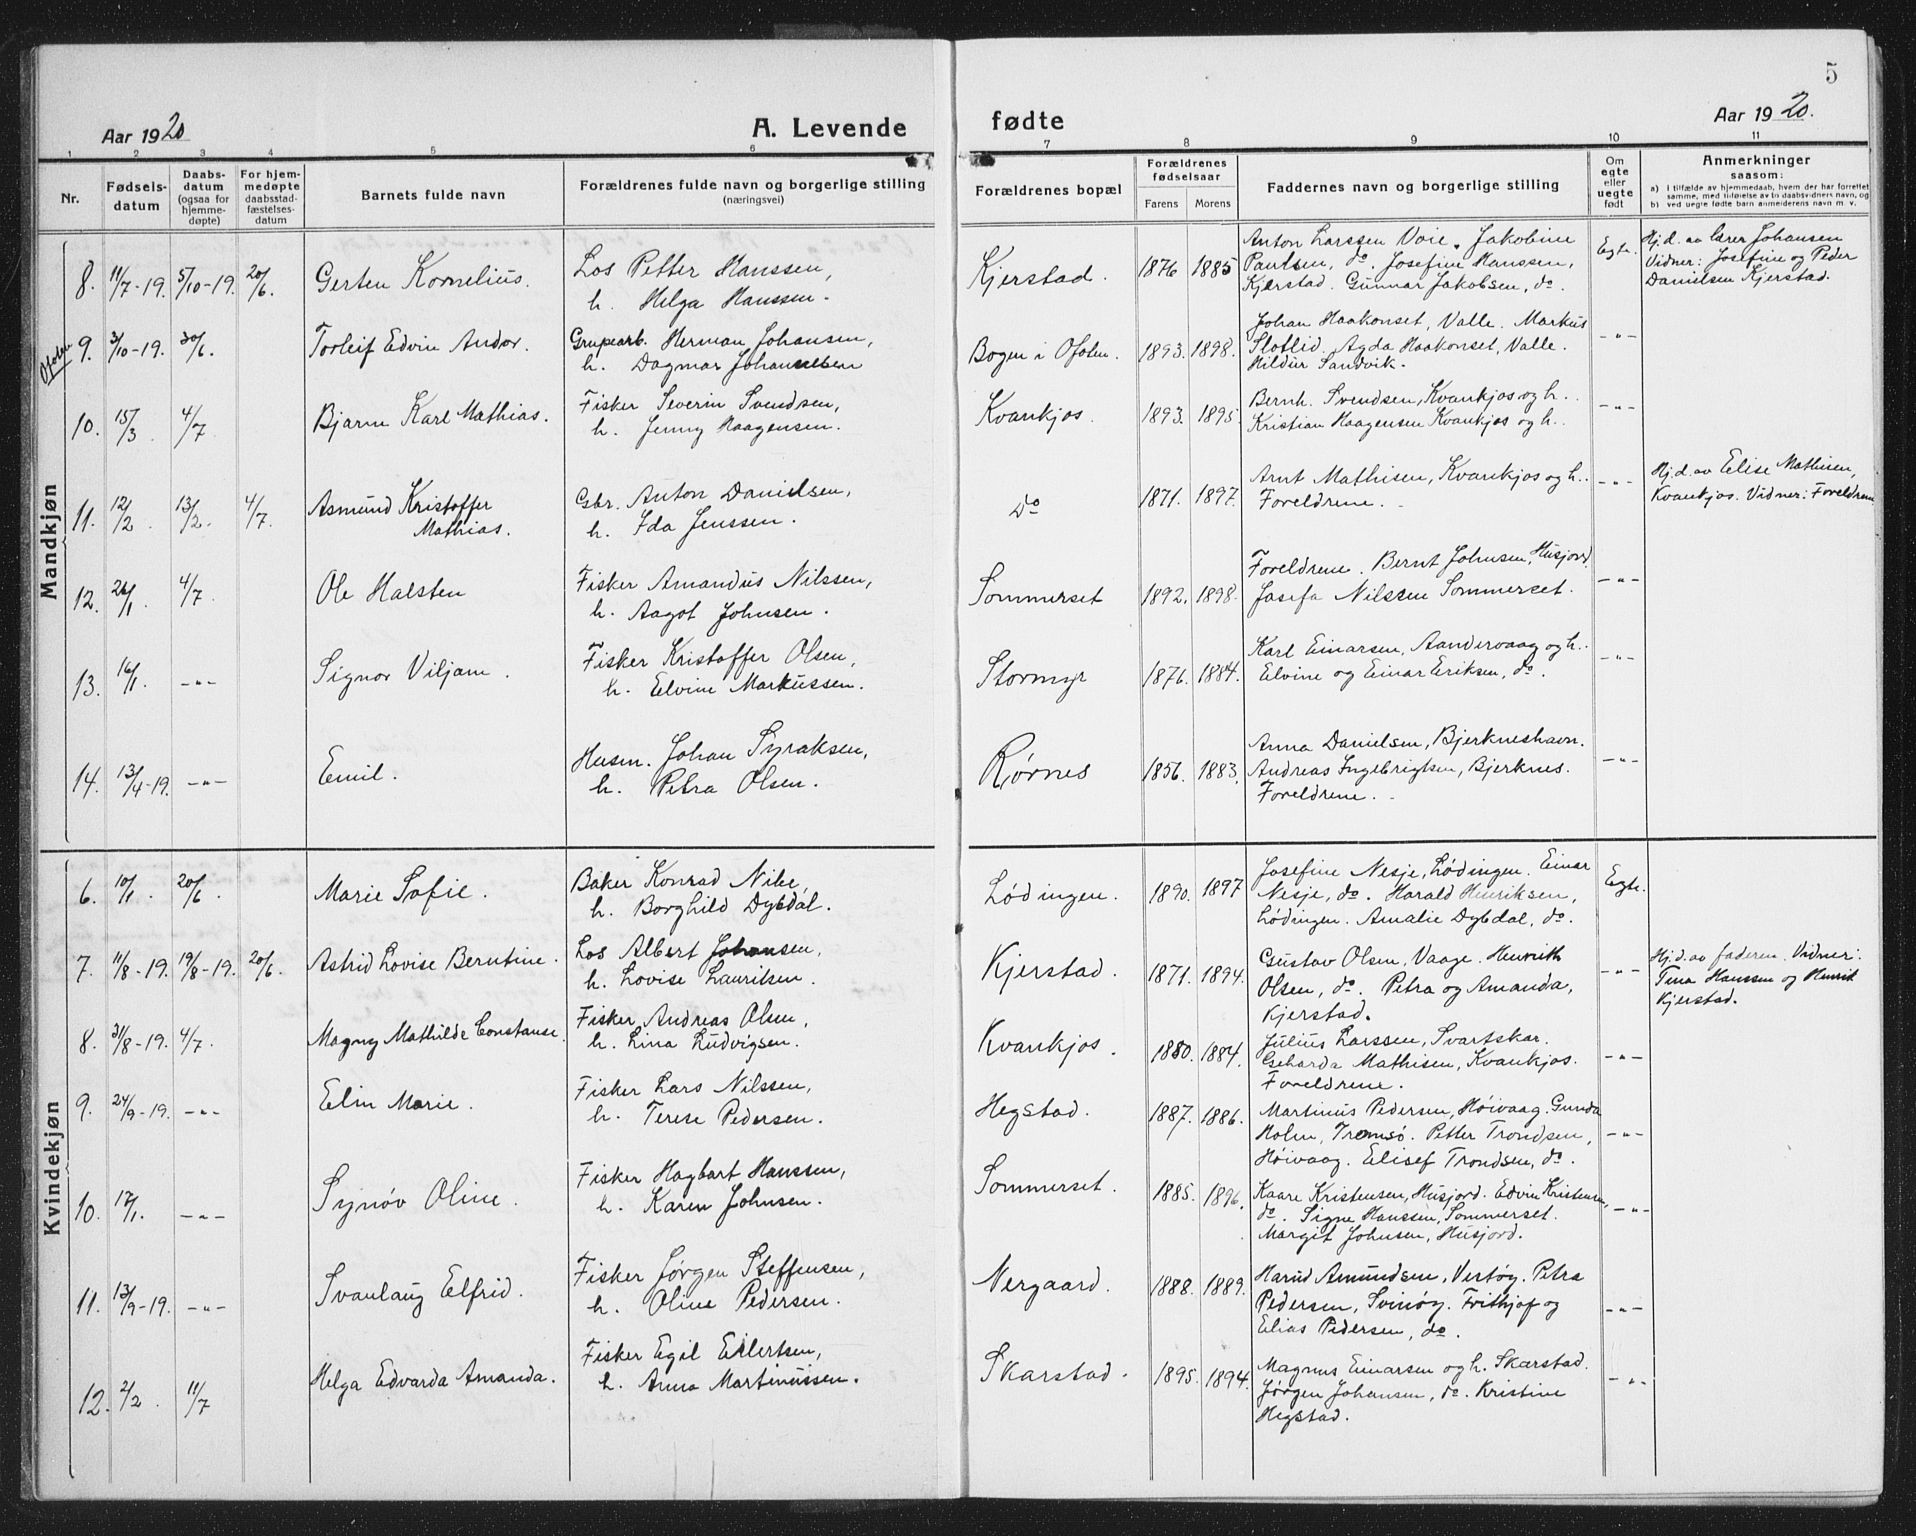 5
Aar 1920
A. Levende fødte
Aar 1920.
1 2 3 4 5 6 7 8 9 10 11
Nr.
Fødsels-
datum
Daabs-
datum
(ogsaa for
hjemme-
døpte)
For hjem-
medøpte
daabsstad-
fæstelses-
datum
Barnets fulde navn
Forældrenes fulde navn og borgerlige stilling
(næringsvei)
Forældrenes bopæl
Forældrenes
fødselsaar
Farens Morens
Faddernes navn og borgerlige stilling
Om
egte
eller
uegte
født
Anmerkninger
saasom:
a) i tilfælde av hjemmedaab, hvem der har forrettet
samme, med tilføielse av to daabsvidners navn, og
b) ved uegte fødte barn anmelderens navn m. v.
Mandkjøn
8. 11/7-19. 5/10-19. 20/6.
Gerten Kornelius.
Los Petter Hanssen,
h. Helga Hanssen.
Kjerstad. 1876 1885
Anton Larssen Voie. Jakobine
Paulsen, do. Josefine Hanssen,
Kjerstad. Gunnar Jakobsen, do.
Egte.
Hj.d. av lærer Johansen
Vidner: Josefine og Peder
Danielsen Kjerstad.
Ofoten
9. 3/10-19. 20/6.
Torleif Edvin Andor.
Grupearb. Herman Johansen,
h. Dagmar Johannessen
Bogen i Ofoten. 1893. 1898.
Johan Haakonset, Valle. Markus
Slotlid. Agda Haakonset, Valle.
Hildur Sandvik.
-"-
10. 15/3. 4/7
Bjarne Karl Mathias.
Fisker Severin Svendsen,
h. Jenny Haagensen.
Kvankjos. 1893. 1895.
Bernh. Svendsen, Kvankjos og h..
Kristian Haagensen Kvankjos og h..
-"-
11. 12/2. 13/2. 4/7.
Asmund Kristoffer
Mathias.
Gbr. Anton Danielsen,
h. Ida Jenssen.
Do 1871. 1897.
Arnt Mathisen, Kvankjos og h..
Foreldrene.
-"-
Hj.d. av Elise Mathisen,
Kvankjos. Vidner: Foreldrene
12. 26/1. 4/7.
Ole Halsten
Fisker Amandus Nilssen,
h. Aagot Johnsen.
Sommerset 1892. 1898.
Foreldrene. Bernt Johnsen, Husjord
Josefa Nilssen Sommerset.
-"-
13. 16/1. -"-
Signor Viljam.
Fisker Kristoffer Olsen,
h. Elvine Markussen.
Stormyr 1876. 1884.
Karl Einarsen, Aandervaag og h..
Elvine og Einar Eriksen, do.
-"-
14. 13/4-19. -"-
Emil.
Husm. Johan Syraksen,
h. Petra Olsen.
Rørnes 1856. 1883.
Anna Danielsen, Bjerkneshavn.
Andreas Ingebrigtsen, Bjerknes.
Foreldrene.
-"-
Kvindekjøn
6. 10/1. 20/6.
Marie Sofie.
Baker Konrad Nibe,
h. Borghild Dybdal.
Lødingen. 1890. 1897
Josefine Nesje, Lødingen. Einar
Nesje, do. Harald Henriksen,
Lødingen. Amalie Dybdal, do.
Egte.
7. 11/8-19. 19/8-19. 20/6.
Astrid Lovise Berntine.
Los Albert Johansen,
h. Lovise Lauritsen.
Kjerstad. 1871. 1894.
Gustav Olsen, Vaage. Henrik
Olsen, do. Petra og Amanda,
Kjerstad.
-"-
Hj.d. av faderen. Vidner:
Tina Hanssen og Henrik
Kjerstad.
8. 31/8-19. 4/7.
Magny Mathilde Constanse.
Fisker Andreas Olsen,
h. Lina Ludvigsen.
Kvankjos. 1880. 1884.
Julius Larssen, Svartskar.
Geharda Mathisen, Kvankjos.
Foreldrene.
-"-
9. 24/9-19. -"-
Elin Marie.
Fisker Lars Nilssen,
h. Terese Pedersen.
Hegstad. 1887. 1886.
Martinus Pedersen, Høivaag. Gunda
Holm, Tromsø. Petter Trondsen,
Høivaag. Elisef Trondsen, do.
-"-
10. 17/1. -"-
Synøv Oline.
Fisker Hagbart Hanssen,
h. Karen Johnsen.
Sommerset. 1885. 1896.
Kaare Kristensen, Husjord. Edvin Kristensen,
do. Signe Hanssen, Sommerset.
Margit Johnsen, Husjord.
-"-
11. 13/9-19. -"-
Svanlaug Elfrid.
Fisker Jørgen Steffensen,
h. Oline Pedersen.
Nergaard. 1888. 1889.
Harud Amundsen, Vertøy. Petra
Pedersen, Svinøy. Frithjof og
Elias Pedersen, do.
-"-
12. 2/2. 11/7
Helga Edvarda Amanda.
Fisker Egil Eilertsen,
h. Anna Martinussen.
Skarstad. 1895. 1894.
Magnus Einarsen og h. Skarstad.
Jørgen Johansen, do. Kristine
Hegstad.
-"-